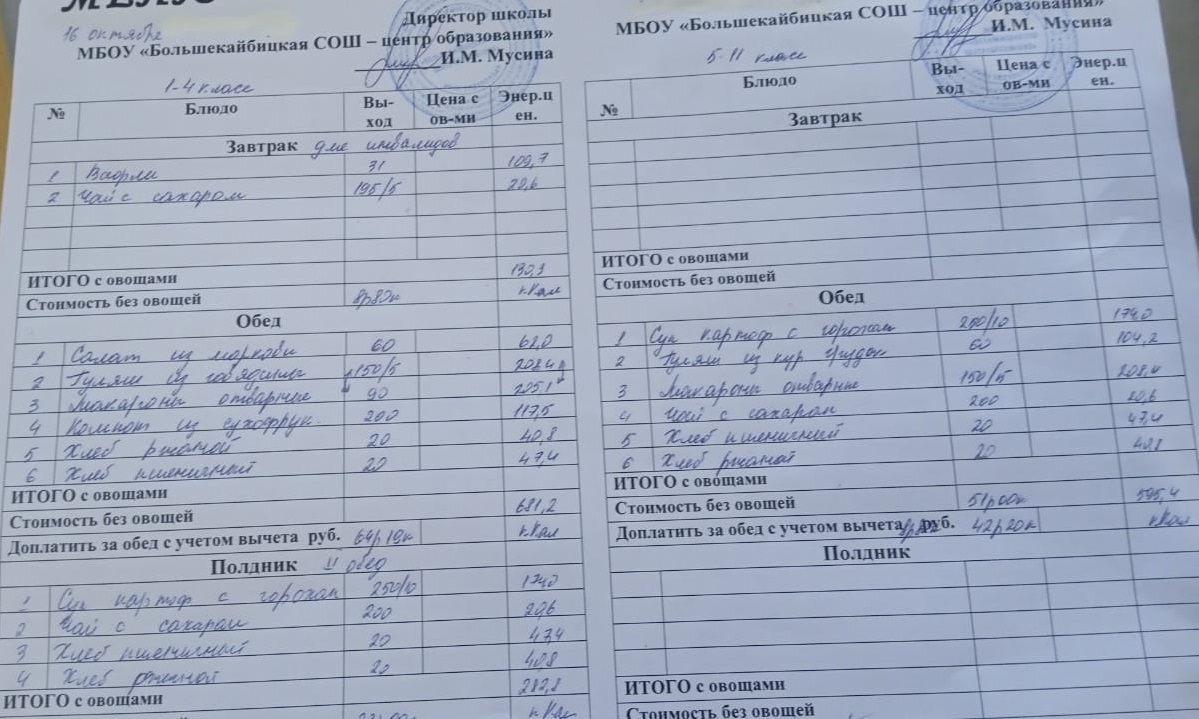 16 октября
Директор школы
МБОУ «Большекайбицкая СОШ – центр образования»
И.М. Мусина
1-4 класс
№ Блюдо Вы-ход Цена с ов-ми Энер.цен.
Завтрак для инвалидов
1 Вафли 31 109,7
2 Чай с сахаром 195/5 20,6
ИТОГО с овощами 130,3
Стоимость без овощей 8р80к кКал
Обед
1 Салат из моркови 60 62,0
2 Гуляш из говядины 150/5 208,4
3 Макароны отварные 90 205,1
4 Компот из сухофрук. 200 117,5
5 Хлеб ржаной 20 40,8
6 Хлеб пшеничный 20 47,4
ИТОГО с овощами
Стоимость без овощей 681,2
Доплатить за обед с учетом вычета руб. 64р19к кКал
Полдник II обед
1 Суп картоф с горохом 250/10 174,0
2 Чай с сахаром 200 20,6
3 Хлеб пшеничный 20 47,4
4 Хлеб ржаной 20 40,8
ИТОГО с овощами 282,8
кКал
МБОУ «Большекайбицкая СОШ – центр образования»
И.М. Мусина
5-11 класс
№ Блюдо Вы-ход Цена с ов-ми Энер.цен.
Завтрак
ИТОГО с овощами
Стоимость без овощей
Обед
1 Суп картоф с горохом 200/10 174,0
2 Гуляш из кур грудок 60 104,2
3 Макароны отварные 150/5 208,4
4 Чай с сахаром 200 20,6
5 Хлеб пшеничный 20 47,4
6 Хлеб ржаной 20 40,8
ИТОГО с овощами
Стоимость без овощей 51р00к 595,4
Доплатить за обед с учетом вычета руб. 42р20к кКал
Полдник
ИТОГО с овощами
Стоимость без овощей